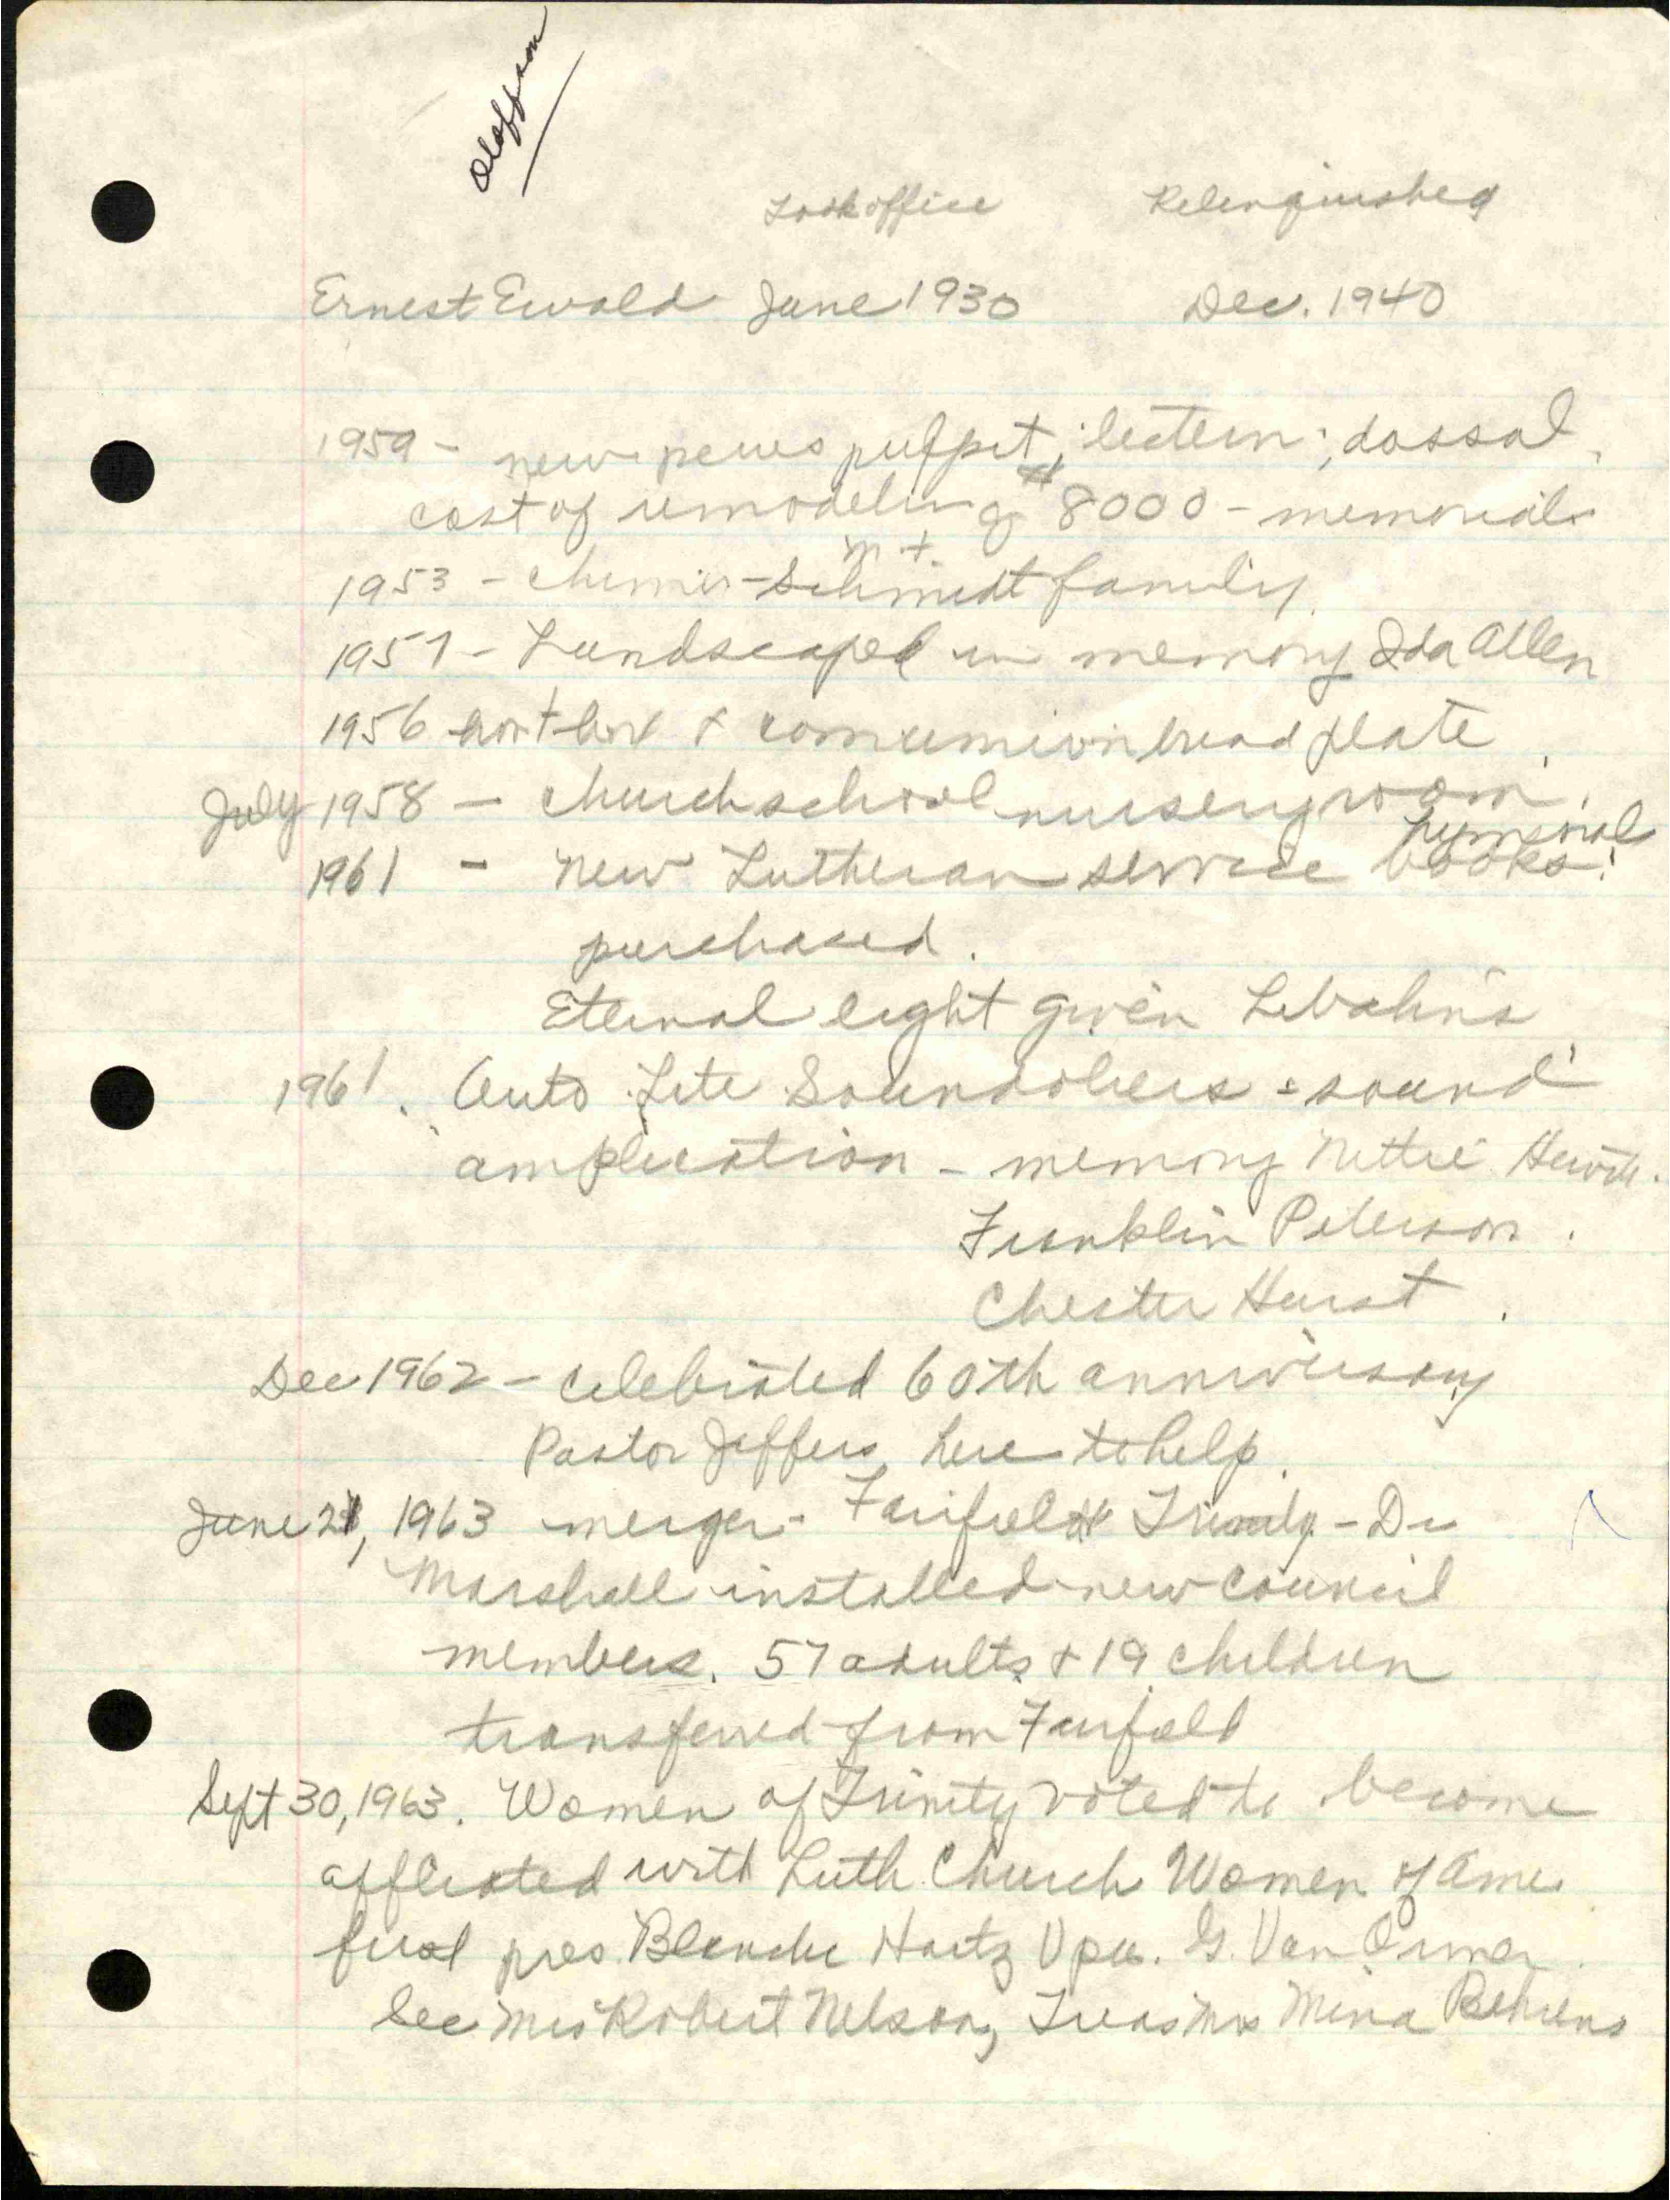 Oloffson
Took office Relenquished
Ernest Ewald June 1930 Dec. 1940
1959 - new pews pulpit; lectern; dossal
cost of remodeling $8000 - memorials
M +
1953 - chimes - Schmidt family
1957 - Landscaped in memory Ida Allen
1956 & communion bread plate
July 1958 - church school nursery room.
hymnal
1961 - new Lutheran service books
purchased.
Eternal light given Lebahns
1961. Auto Lite Soundoliers - sound
amplication - memory Nettie
Franklin Peterson.
Chester Hurst.
Dec 1962 - celebrated 60th anniversary
Pastor Jeffers here to help.
June 21, 1963 merger - Fairfield Trinity - Dr
Marshall installed new council
members. 57 adults & 19 children
transferred from Fairfield
Sept 30, 1963. Women of Trinity voted to become
affliated with Luth. Church Women of Amer
first pres Blanche Hartz V pres. G. Van Ormer
Sec Mrs Robert Nelson, Treas Mrs Mina Behrens